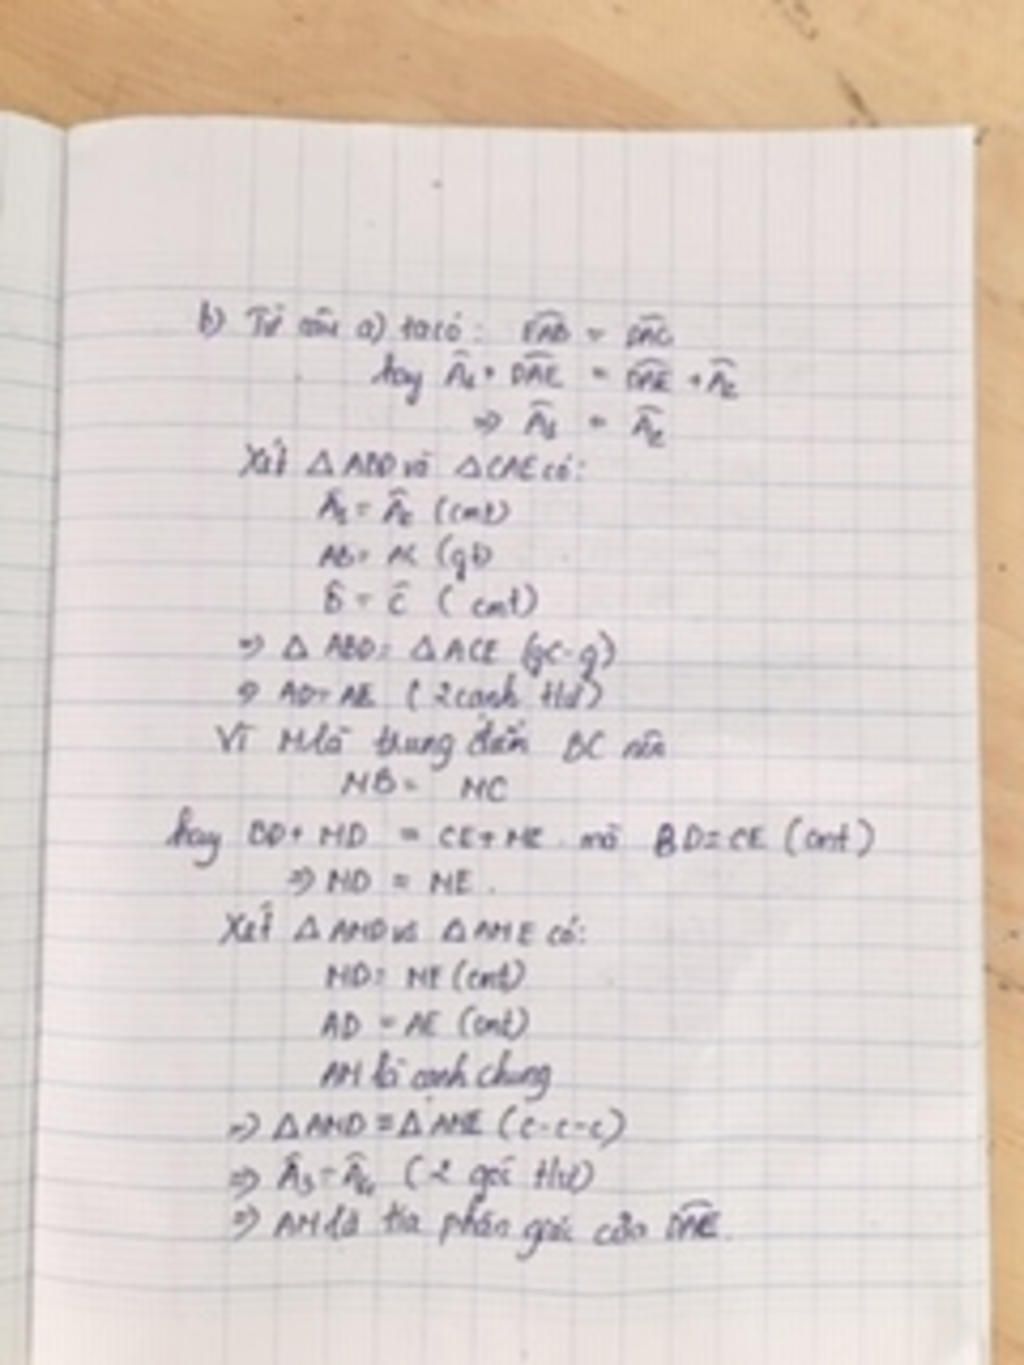 b) Từ câu a) ta có: EAB = DAC
hay Â₁ + DAE = DAE + Â₂
=> Â₁ = Â₂
Xét Δ ABD và Δ CAE có:
Â₁ = Â₂ (cmt)
AB = AC (gt)
B̂ = Ĉ (cmt)
=> Δ ABD = Δ ACE (gc-g)
=> AD = AE (2 cạnh tư)
Vì M là trung điểm BC nên
MB = MC
hay BD + MD = CE + ME mà BD = CE (cmt)
=> MD = ME.
Xét Δ AMD và Δ AME có:
MD = ME (cmt)
AD = AE (cmt)
AM là cạnh chung
=> Δ AMD = Δ AME (c-c-c)
=> Â₃ = Â₄ (2 góc tư)
=> AM là tia phân giác của DAE.